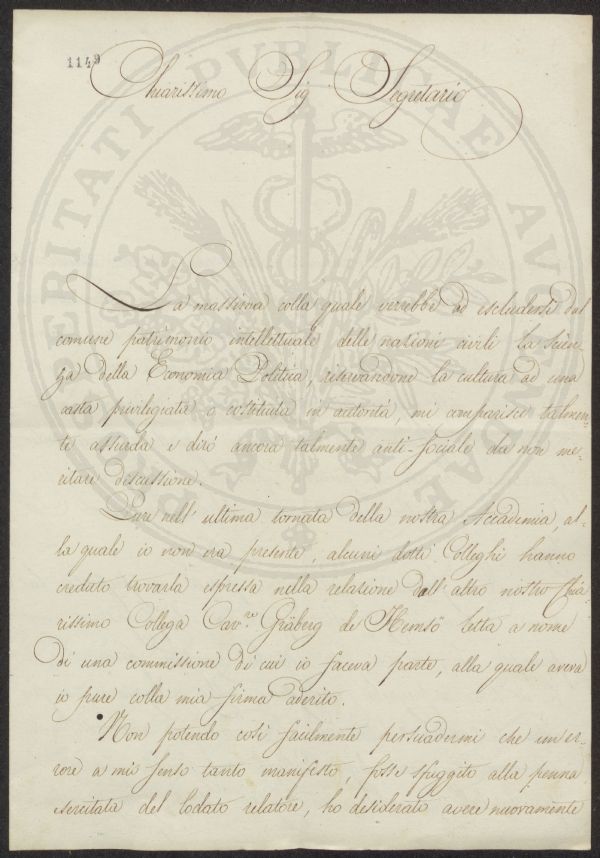 1149
Chiarissimo Sig Segretario
La massima colla quale verrebbe ad escludersi dal
comune patrimonio intellettuale delle nazioni civili la scien-
za della Economia Politica, riservandone la cultura ad una
casta privilegiata o costituita in autorità, mi comparisce talmen-
te assurda e dirò ancora talmente anti-sociale da non me-
ritare discussione.
Pure nell' ultima tornata della nostra Accademia, al-
la quale io non era presente, alcuni dotti Colleghi hanno
creduto trovarla espressa nella relazione dall' altro nostro Chia-
rissimo Collega Cav.re Gräberg de Hemsö letta a nome
di una commissione di cui io faceva parte, alla quale aveva
io pure colla mia firma aderito.
Non potendo così facilmente persuadermi che un er-
rore a mio senso tanto manifesto, fosse sfuggito alla penna
esercitata del lodato relatore, ho desiderato avere nuovamente
PROSPERITATI PUBLICAE AUGENDAE